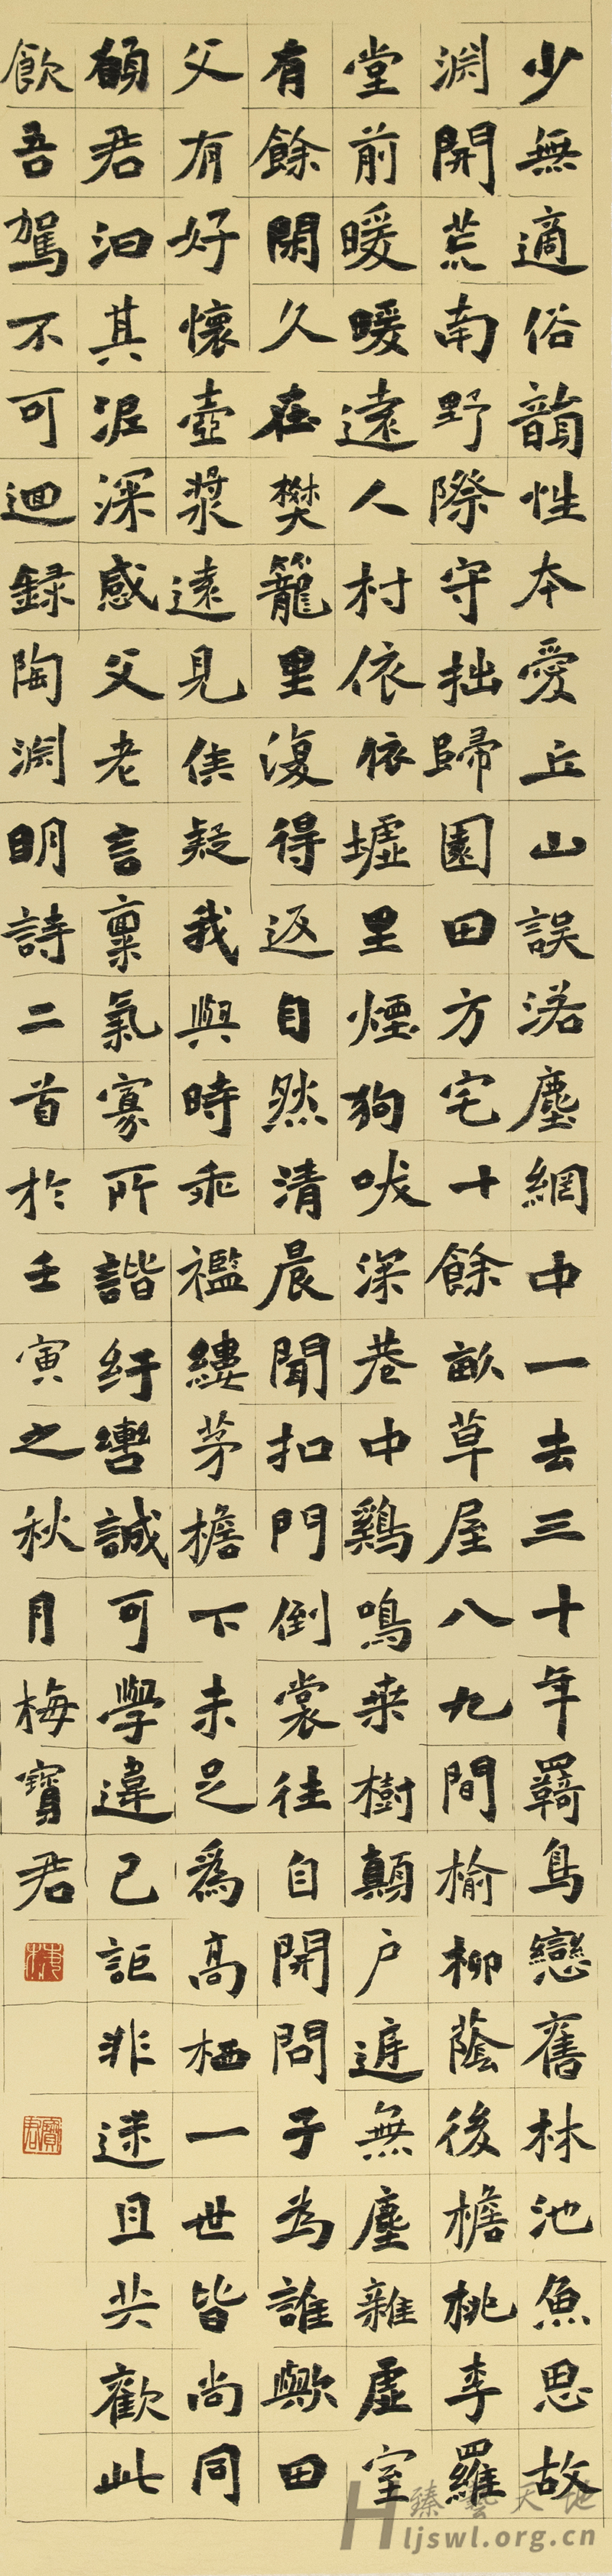 少無適俗韻性本愛丘山誤落塵網中一去三十年羇鳥戀舊林池魚思故
淵開荒南野際守拙歸園田方宅十餘畝草屋八九間榆柳蔭後檐桃李羅
堂前暖暖遠人村依依墟里煙狗吠深巷中鷄鳴桑樹顛户庭無塵雜虛室
有餘閑久在樊籠里復得返自然清晨聞扣門倒裳往自開問子為誰歟田
父有好懷壺漿遠見候疑我與時乖襤縷茅檐下未足爲高栖一世皆尚同
願君汩其泥深感父老言稟氣寡所諧紆轡誠可學違己詎非迷且共歡此
飲吾駕不可迴録陶淵明詩二首於壬寅之秋月梅寶君
寶君
臻藝天地
Hljswl.org.cn